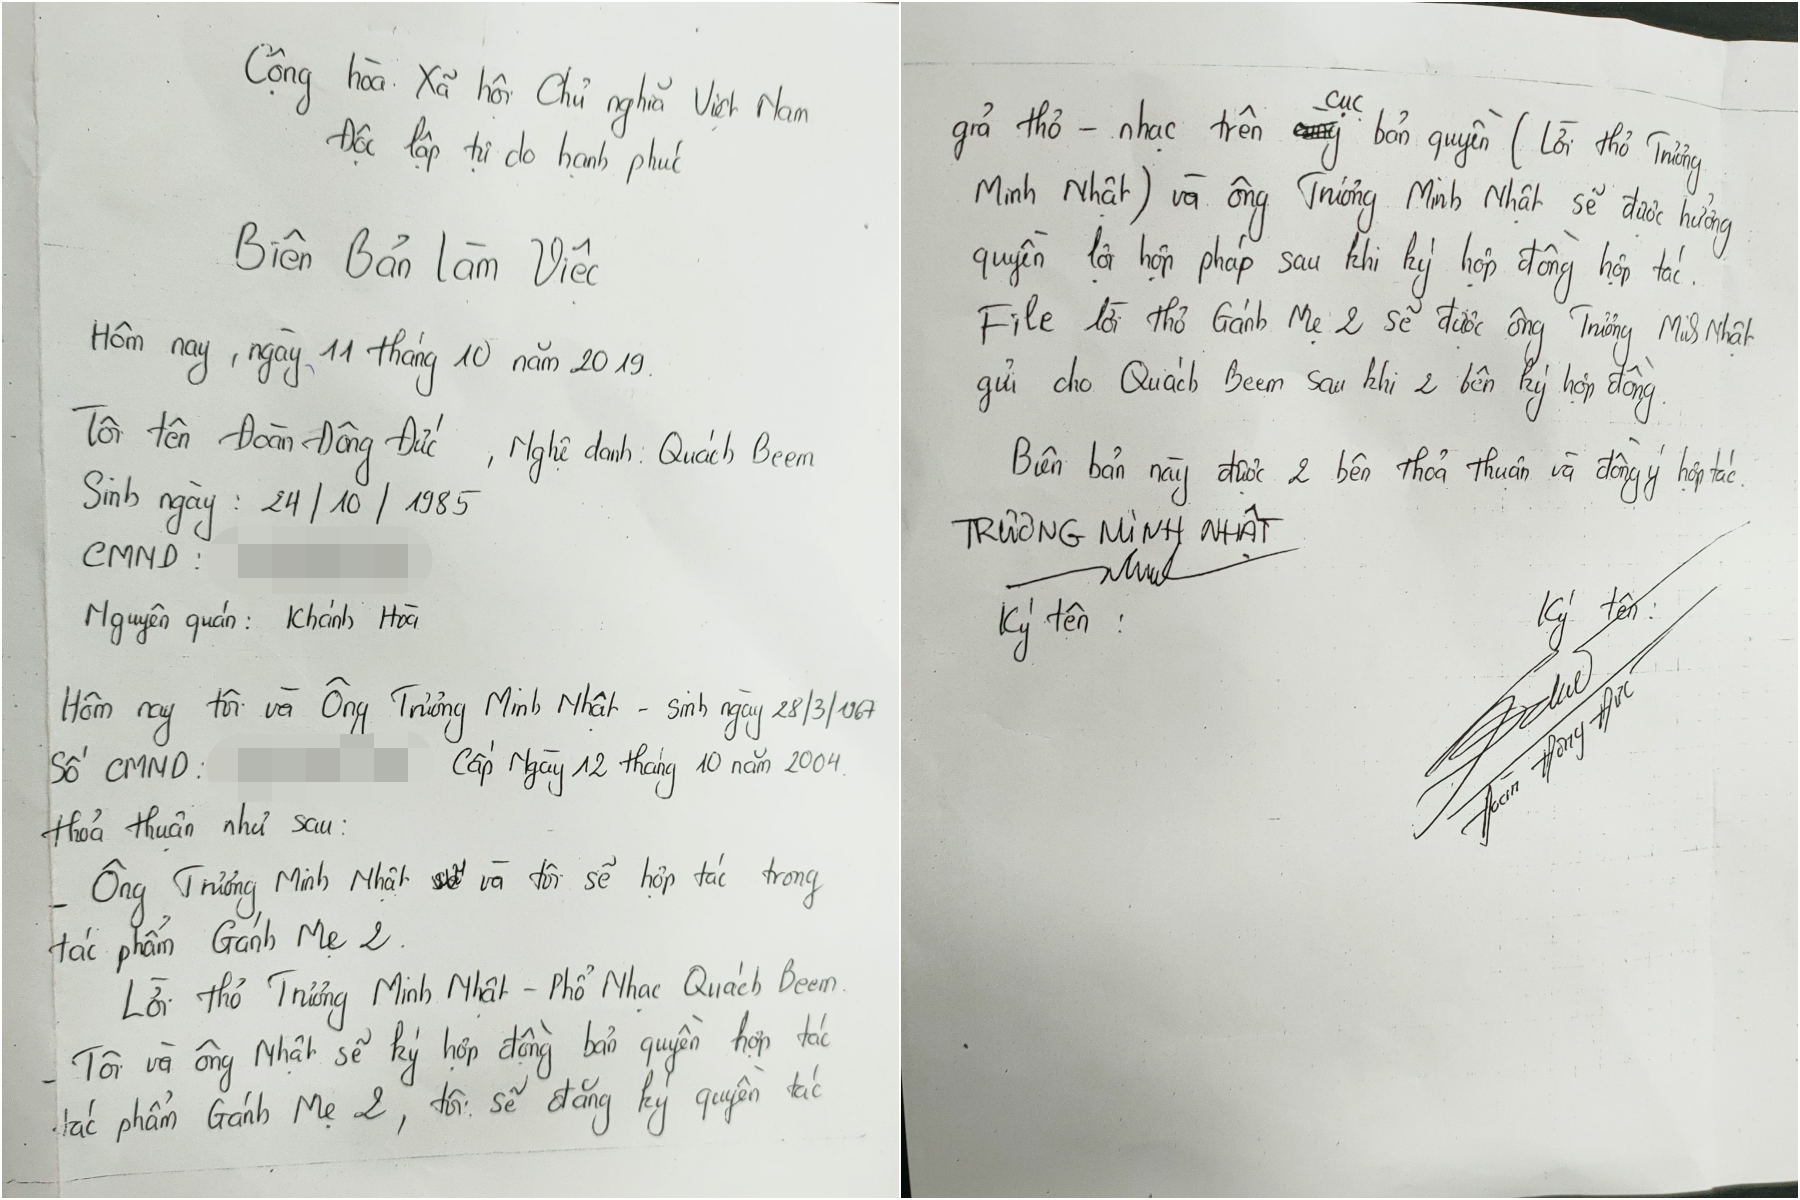 Cộng hòa Xã hội Chủ nghĩa Việt Nam
Độc lập tự do hạnh phúc
Biên Bản Làm Việc
Hôm nay, ngày 11 tháng 10 năm 2019.
Tôi tên Đoàn Đông Đức, Nghệ danh: Quách Beem
Sinh ngày: 24/10/1985
CMND:
Nguyên quán: Khánh Hòa
Hôm nay tôi và Ông Trương Minh Nhật - Sinh ngày 28/3/1967
Số CMND: Cấp Ngày 12 tháng 10 năm 2004.
thoả thuận như sau:
- Ông Trương Minh Nhật và tôi sẽ hợp tác trong
tác phẩm Gánh Mẹ 2.
Lời thơ Trương Minh Nhật - Phổ Nhạc Quách Beem.
- Tôi và ông Nhật sẽ ký hợp đồng bản quyền hợp tác
tác phẩm Gánh Mẹ 2, tôi sẽ đăng ký quyền tác
giả thơ - nhạc trên cục bản quyền (Lời thơ Trương
Minh Nhật) và ông Trương Minh Nhật sẽ được hưởng
quyền lợi hợp pháp sau khi ký hợp đồng hợp tác.
File lời thơ Gánh Mẹ 2 sẽ được ông Trương Minh Nhật
gửi cho Quách Beem sau khi 2 bên ký hợp đồng.
Biên bản này được 2 bên thoả thuận và đồng ý hợp tác.
TRƯƠNG MINH NHẬT
Ký tên:
Ký tên:
Đoàn Đông Đức